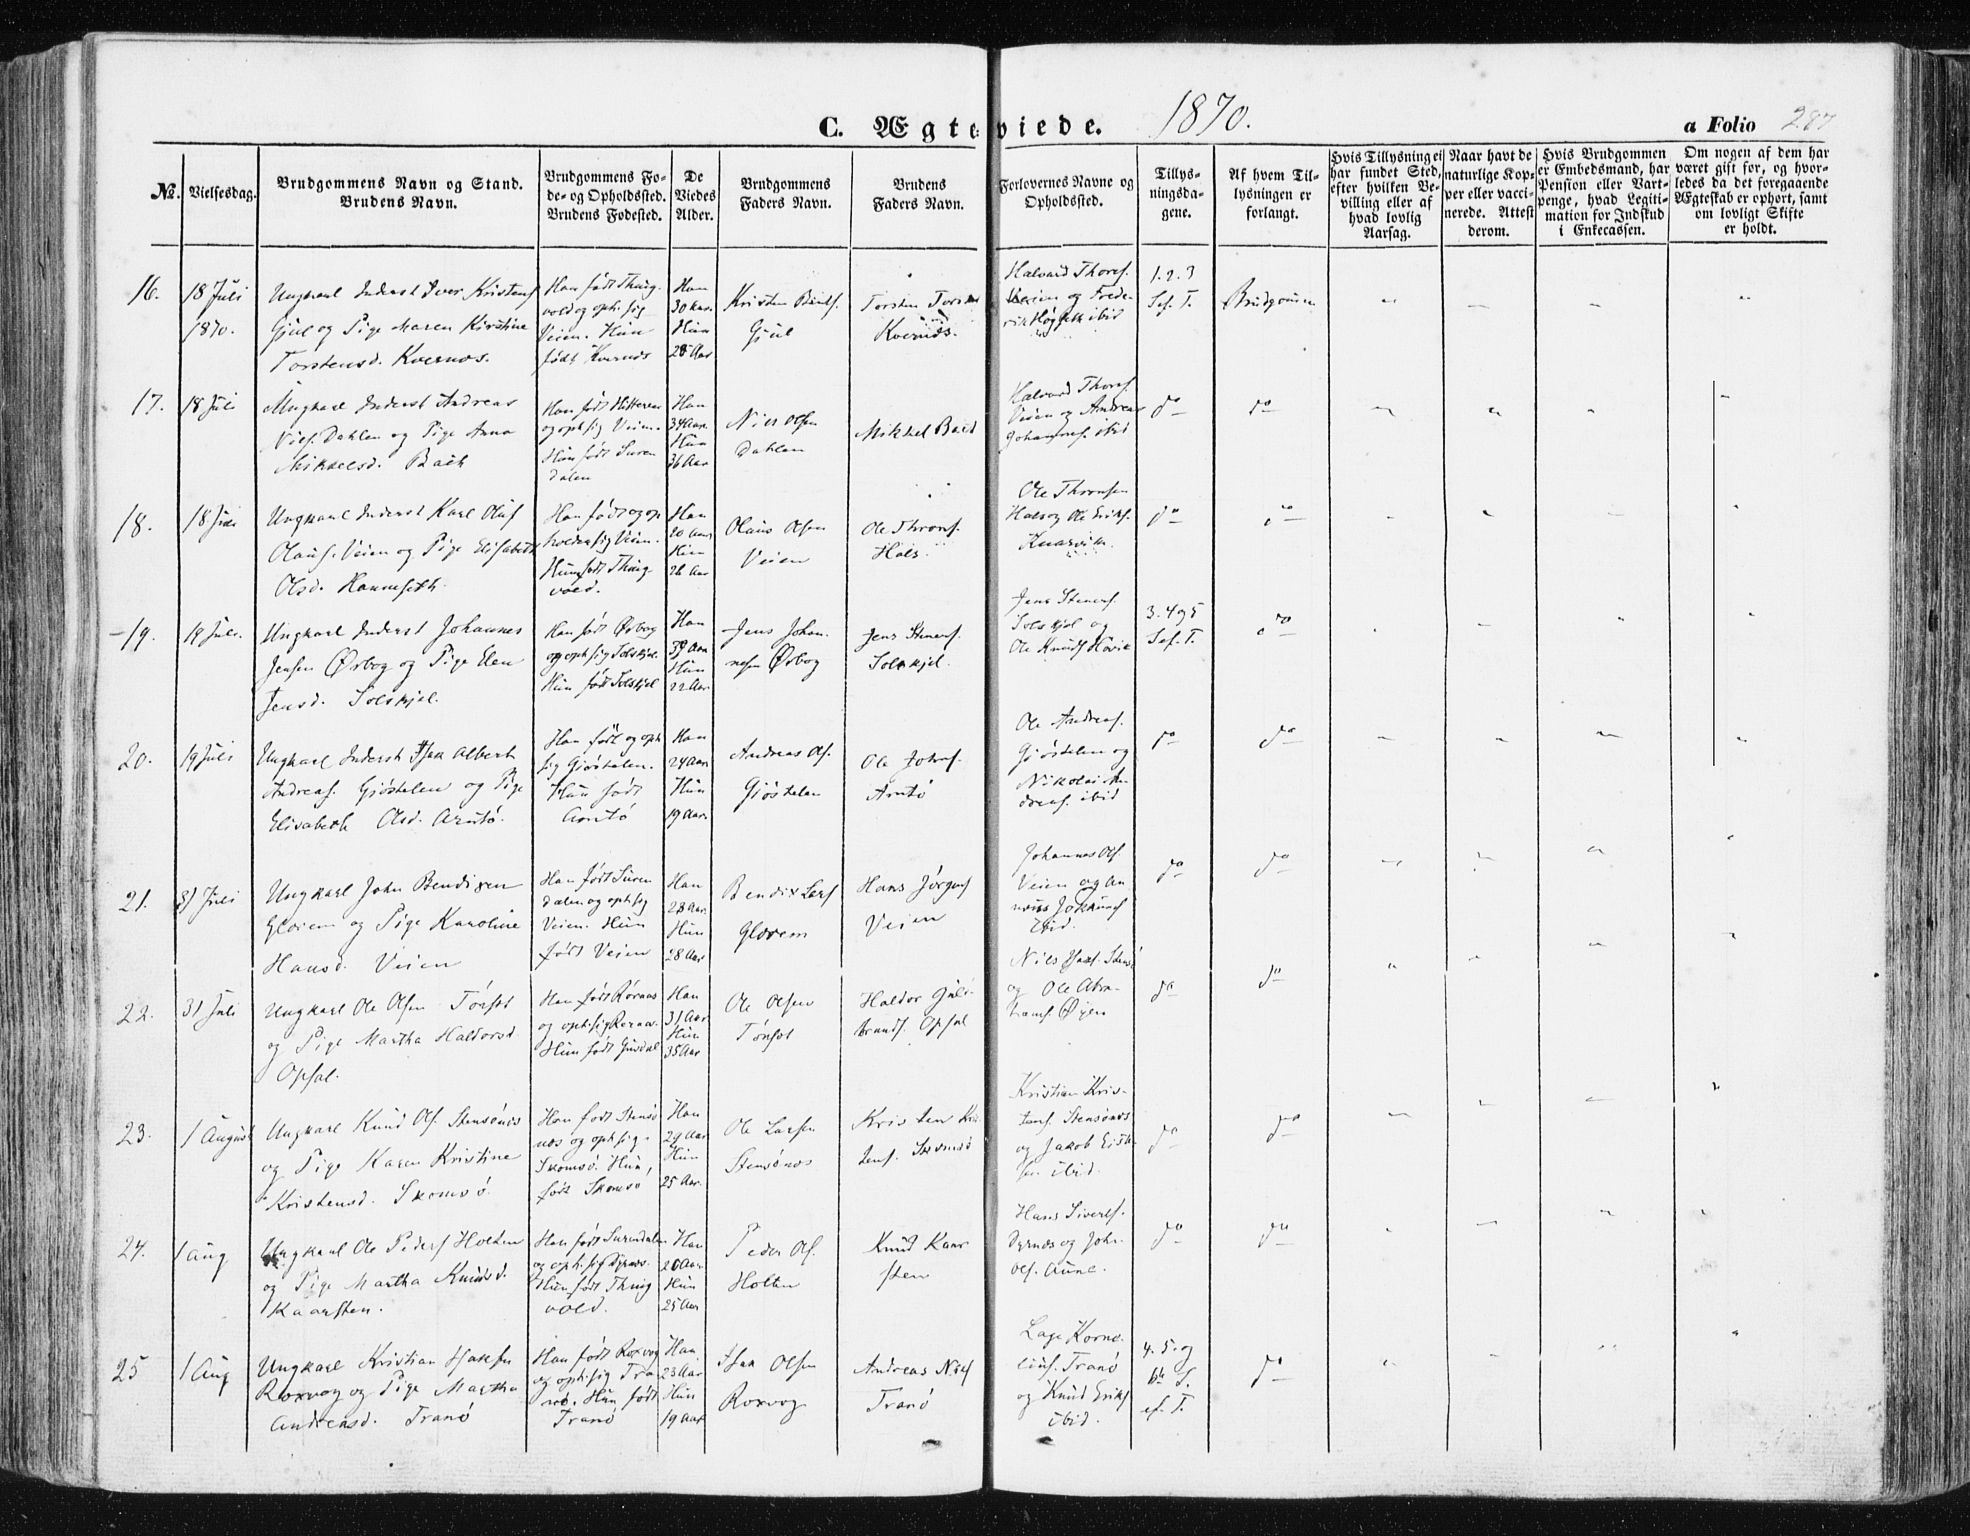 C. Ægteviede. 1870. a Folio 287
№.
Vielsesdag.
Brudgommens Navn og Stand.
Brudens Navn.
Brudgommens Fo-
de- og Opholdssted.
Brudens Fødested.
De
Viedes
Alder.
Brudgommens
Faders Navn.
Brudens
Faders Navn.
Forlovernes Navne og
Opholdssted.
Tillys-
ningsda-
gene.
Af hvem Til-
lysningen er
forlangt.
Hvis Tillysning ei
har fundet Sted,
efter hvilken Be-
villing eller af
hvad lovlig
Aarsag.
Naar havt de
naturlige Kop-
per eller vacci-
nerede. Attest
derom.
Hvis Brudgommen
er Embedsmand, har
Pension eller Vart-
penge, hvad Legiti-
mation for Indskud
i Enkecassen.
Om nogen af dem har
været gift før, og hvor-
ledes da det foregaaende
Ægteskab er ophørt, samt
om lovligt Skifte
er holdt.
16.
18 Juli
1870.
Ungkarl Inderst Iver Kristens
Gjul og Pige Maren Kirstine
Torstensd. Kvernæs.
Han født Thing-
vold og oph. sig
Veien. Hun
født Kvernæs
Han
30 Aar.
Hun
28 Aar
Kristen
Gjul
Torsten
Kvernæs.
Halvard Thores.
Veien og Frede-
rik ibid
1. 2. 3
S. e. f. T.
Brudgommen
17.
18 Juli
Ungkarl Inderst Andreas
Niels. Dahlen og Pige Anna
Mikkelsd. Bæk
Han født Hitteren
og oph. sig Veien.
Hun født Suren
dalen
Han
34 Aar.
Hun
36 Aar
Niels Olsen
Dahlen
Mikkel
Halvard Thores.
Veien og Andreas
Johannes. ibid
do
do
18.
18 Juli
Ungkarl Inderst Karl Oluf
Olaus. Veien og Pige Elisabeth
Olsd.
Han født og op
holder sig Veien.
Hun født Thing-
vold.
Han
20 Aar
Hun
26 Aar
Olaus Olsen
Veien
Ole Throns.
Hals.
Ole Thronsen
Hals og Ole Eriks.
Knarvik.
do
do
19.
19 Juli.
Ungkarl Inderst Johannes
Jensen Ørbog og Pige Elen
Jensd. Solskjel.
Han født Ørbog
og oph sig Solskjel.
Hun født Solskjel
Han
39 Aar
Hun
22 Aar
Jens Johan-
nesen Ørbog
Jens Steners.
Solskjel.
Jens Steners.
Solskjel og
Ole Knuds Havik
3. 4 og 5
S. e. f. T.
do
20.
19 Juli
Ungkarl Inderst Isak Albert
Andreas. Gjøstelen og Pige
Elisabeth Olsd. Arntø.
Han født og oph
sig Gjøstelen.
Hun født
Arntø
Han
24 Aar.
Hun
19 Aar.
Andreas Ols.
Gjøstelen
Ole Johns.
Arntø
Ole Andreas.
Gjøstelen og
Nikolai An-
dreas. ibid
do
do
21.
31 Juli
Ungkarl John Bendixen
Glærem og Pige Karoline
Hansd. Veien
Han født Suren
dalen og oph sig
Veien. Hun
født Veien
Han
28 Aar.
Hun
28 Aar
Bendix Lars
Glærem
Hans Jørgens
Veien
Johannes Ols.
Veien og
ibid.
do
do
22.
31 Juli
Ungkarl Ole Olsen Tønset
og Pige Martha Haldorsd
Opsal.
Han født Rørnæs
og oph. sig
Hun født
Han
31 Aar
Hun
35 Aar
Ole Olsen
Tønset
Haldor Gul-
brands. Opsal
Nils
og Ole Abra-
hams. Øyen
do
do
23.
1 August
Ungkarl Knud Ols. Stensønæs
og Pige Karen Kristine
Kristensd. Skomsø.
Han født Stensø
næs og oph sig
Skomsø. Hun,
født Skomsø
Han
29 Aar
Hun
25 Aar.
Ole Larsen
Stensønæs
Kristen Kris
tens. Skomsø
Kristian Kris-
tens. Stensønæs
og Jakob
ibid.
do
do
24.
1 Aug
Ungkarl Ole Peders Holten
og Pige Martha Knudsd.
Kaarsten.
Han født Surendalen
og oph. sig Dyrnæs.
Hun født Thing
vold.
Han
26 Aar.
Hun
25 Aar
Peder Ols.
Holten
Knud Kaar
sten
Hans Siverts.
Dyrnæs og John
Ols. Aune.
do
do
25
1 Aug
Ungkarl Kristian Isaksen
Roxvog og Pige Martha
Andreasd. Tranø
Han født Roxvog
og oph. sig Tra
nø. Hun født
Tranø
Han
23 Aar
Hun
19 Aar
Isak Olsen
Roxvog
Andreas Niels
Tranø
Lage Korne-
lius. Tranø
og Knud Eriks
ibid.
4. 5. og
6te S.
e. f. T.
do